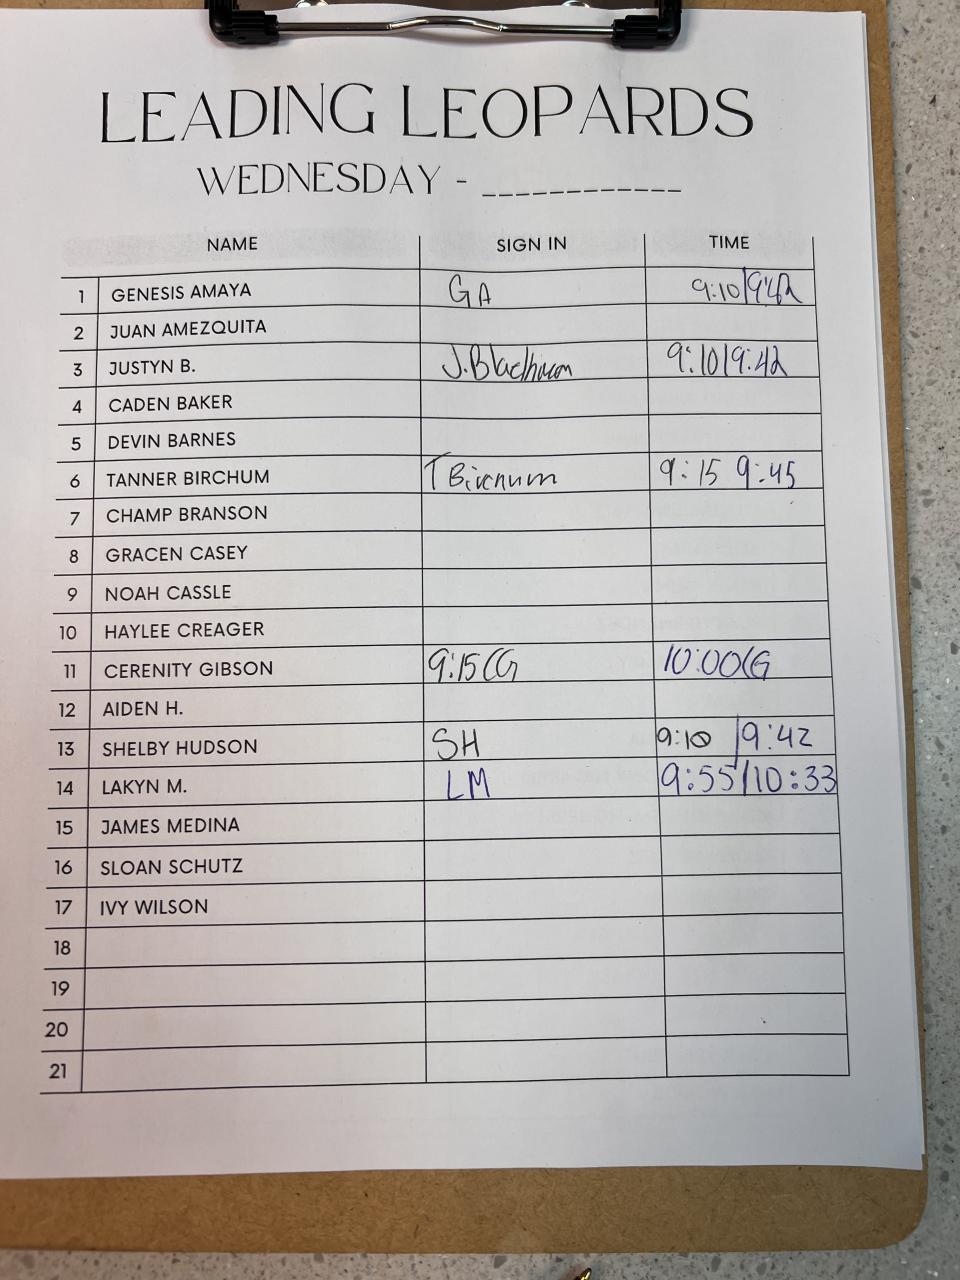 LEADING LEOPARDS
WEDNESDAY - ____________
NAME SIGN IN TIME
1 GENESIS AMAYA GA 9:10/9:42
2 JUAN AMEZQUITA
3 JUSTYN B. J.Blackburn 9:10/9:42
4 CADEN BAKER
5 DEVIN BARNES
6 TANNER BIRCHUM T Birchum 9:15 9:45
7 CHAMP BRANSON
8 GRACEN CASEY
9 NOAH CASSLE
10 HAYLEE CREAGER
11 CERENITY GIBSON 9:15 CG 10:00 CG
12 AIDEN H.
13 SHELBY HUDSON SH 9:10 /9:42
14 LAKYN M. LM 9:55/10:33
15 JAMES MEDINA
16 SLOAN SCHUTZ
17 IVY WILSON
18
19
20
21